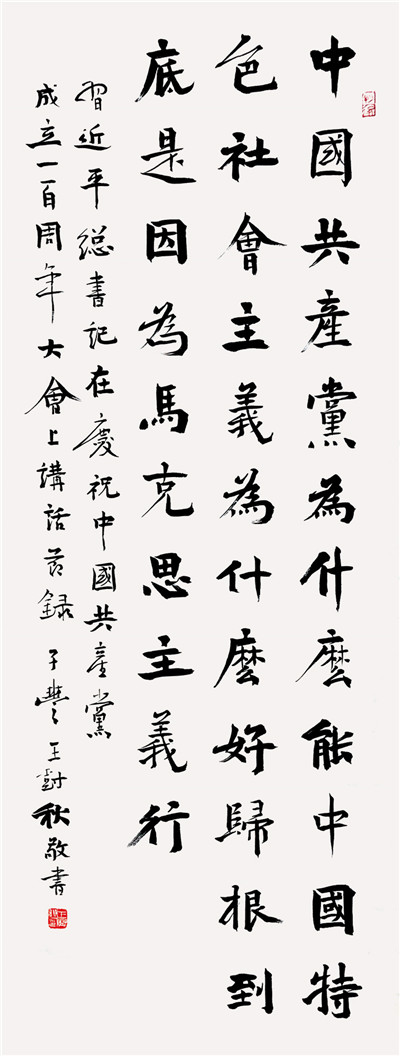 中國共產黨為什麽能中國特
色社會主義為什麽好歸根到
底是因為馬克思主義行
習近平總書記在慶祝中國共產黨
成立一百周年大會上講話節錄 子豐王樹秋敬書